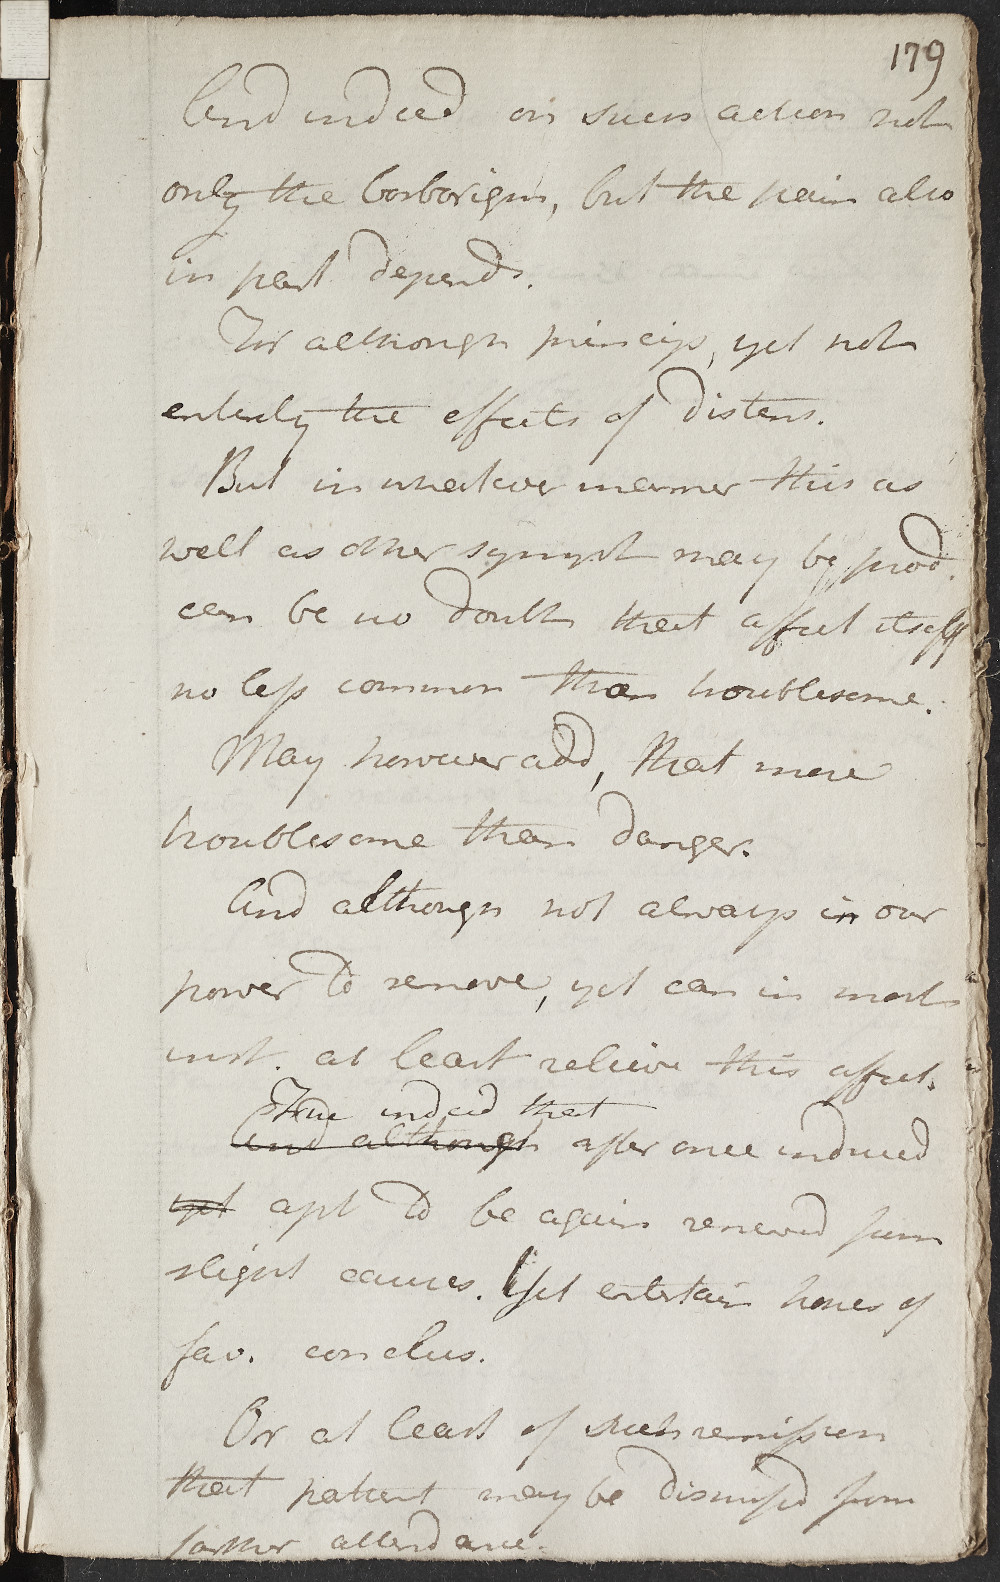 179
And indeed on such action not
only the borborigm, but the pain also
in part depends.
For although princip, yet not
entirely the effects of distens.
But in whatever manner this as
well as other sympt may be prod.
can be no doubt that affect itself
no less common than troublesome.
May however add, that more
troublesome than danger.
And although not always in our
power to remove, yet can in most
inst. at least relieve this affect.
True indeed that
And although after once induced
yet apt to be again renewed from
slight causes. Yet entertain hopes of
fav. conclus.
Or at least of such remission
that patient may be dismissed from
farther attendance.